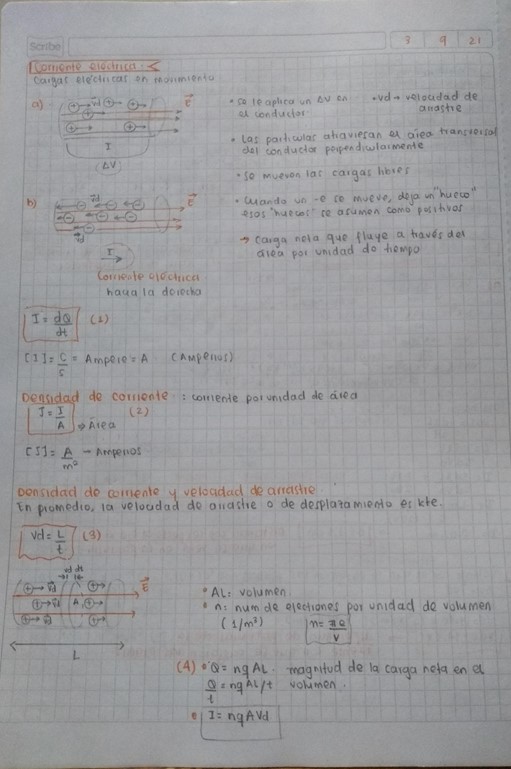 Scribe
3 9 21
Corriente eléctrica:
Cargas eléctricas en movimiento
a)
Vd
E
I
ΔV
• Se le aplica un ΔV en
el conductor
• Vd → velocidad de
arrastre
• Las partículas atraviesan el área transversal
del conductor perpendicularmente
• Se mueven las cargas libres
b)
Vd
E
Vd
I
Corriente eléctrica
hacia la derecha
• Cuando un -e se mueve, deja un "hueco"
esos "huecos" se asumen como positivos
→ Carga neta que fluye a través del
área por unidad de tiempo
I = dQ/dt (1)
[I] = C/s = Ampere = A (Amperios)
Densidad de corriente : corriente por unidad de área
J = I/A (2)
→ Área
[J] = A/m² → Amperios
Densidad de corriente y velocidad de arrastre
En promedio, la velocidad de arrastre o de desplazamiento es kte.
Vd = L/t (3)
vd dt
Vd
E
Vd
A
Vd
L
• AL: volumen
• n: num de electrones por unidad de volumen
(1/m³)
(4) • Q = nqAL. magnitud de la carga neta en el
volumen.
Q/t = nqAL/t
• I = nqAVd